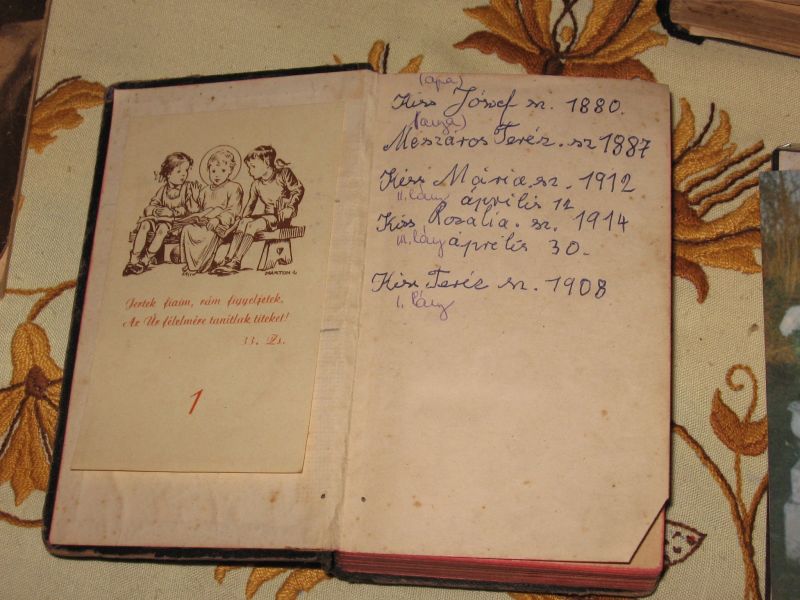 MÁRTON L.
Jertek fiaim, rám figyeljetek,
Az Úr félelmére tanítlak titeket!
33. Zs.
1
(apa)
Kiss József sz. 1880.
(anya)
Mészáros Teréz. sz 1887
Kiss Mária sz. 1912
II. lány április 12
Kiss Rozália. sz. 1914
III. lány április 30.
Kiss Teréz sz. 1908
I. lány